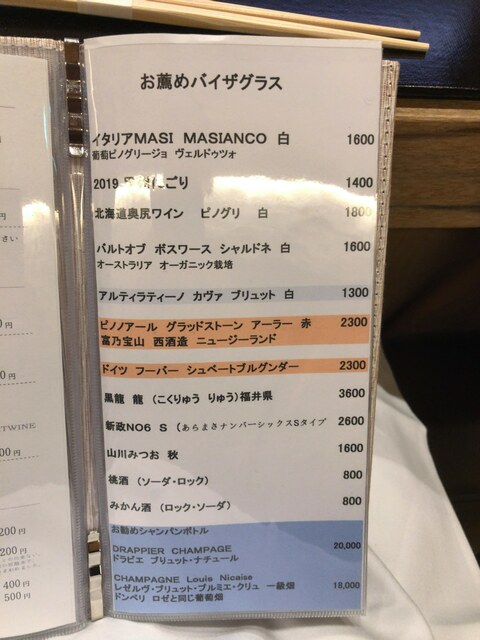 お薦めバイザグラス
イタリアMASI MASIANCO 白 1600
葡萄ピノグリージョ ヴェルドゥツォ
2019 にごり 1400
北海道奥尻ワイン ピノグリ 白 1800
バルトオブ ボスワース シャルドネ 白 1600
オーストラリア オーガニック栽培
アルティラティーノ カヴァ ブリュット 白 1300
ピノノアール グラッドストーン アーラー 赤 2300
富乃宝山 西酒造 ニュージーランド
ドイツ フーバー シュペートブルグンダー 2300
黒龍 龍 (こくりゅう りゅう)福井県 3600
新政NO6 S (あらまさナンバーシックスSタイプ 2600
山川みつお 秋 1600
桃酒 (ソーダ・ロック) 800
みかん酒 (ロック・ソーダ) 800
お勧めシャンパンボトル
DRAPPIER CHAMPAGE 20,000
ドラピエ ブリュット・ナチュール
CHAMPAGNE Louis Nicaise
レゼルヴ・ブリュット・プルミエ・クリュ 一級畑 18,000
ドンペリ ロゼと同じ葡萄畑
円
さい
円
円
TWINE
00円
200円
200円
400円
500円